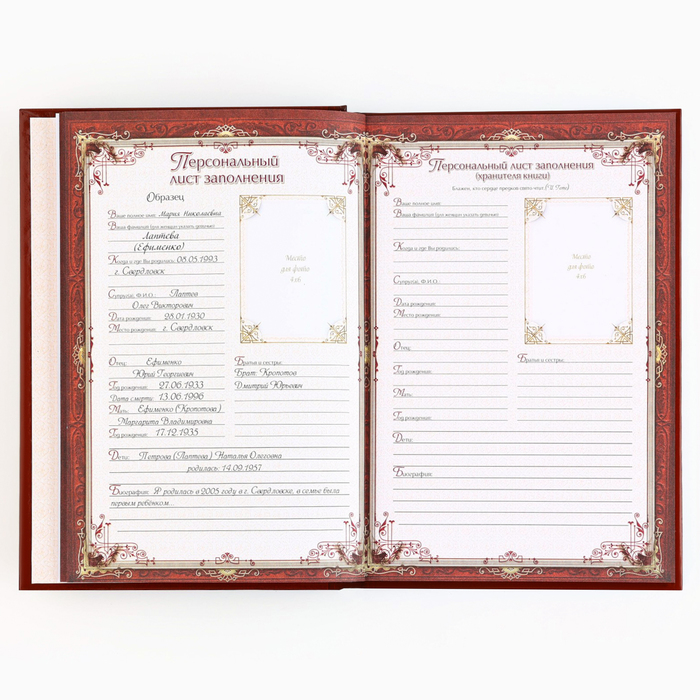 Персональный
лист заполнения
Образец
Ваше полное имя: Мария Николаевна
Ваша фамилия (для женщин указать девичью):
Лаптева
(Ефименко)
Когда и где Вы родились: 08.05.1993
г. Свердловск
Супруг(а), Ф.И.О.: Лаптев
Олег Викторович
Дата рождения: 28.01.1930
Место рождения: г. Свердловск
Место
для фото
4х6
Отец: Ефименко
Юрий Георгиевич
Год рождения: 27.06.1933
Дата смерти: 13.06.1996
Мать: Ефименко (Кропотова)
Маргарита Владимировна
Год рождения: 17.12.1935
Братья и сестры:
Брат: Кропотов
Дмитрий Юрьевич
Дети: Петрова (Лаптева) Наталья Олеговна
родилась: 14.09.1957
Биография: Я родилась в 2005 году в г. Свердловске, в семье была
первым ребёнком...
Персональный лист заполнения
(хранителя книги)
Блажен, кто сердце предков свято чтил (И. Гете)
Ваше полное имя:
Ваша фамилия (для женщин указать девичью):
Когда и где Вы родились:
Супруг(а), Ф.И.О.:
Дата рождения:
Место рождения:
Место
для фото
4х6
Отец:
Год рождения:
Мать:
Год рождения:
Братья и сестры:
Дети:
Биография: